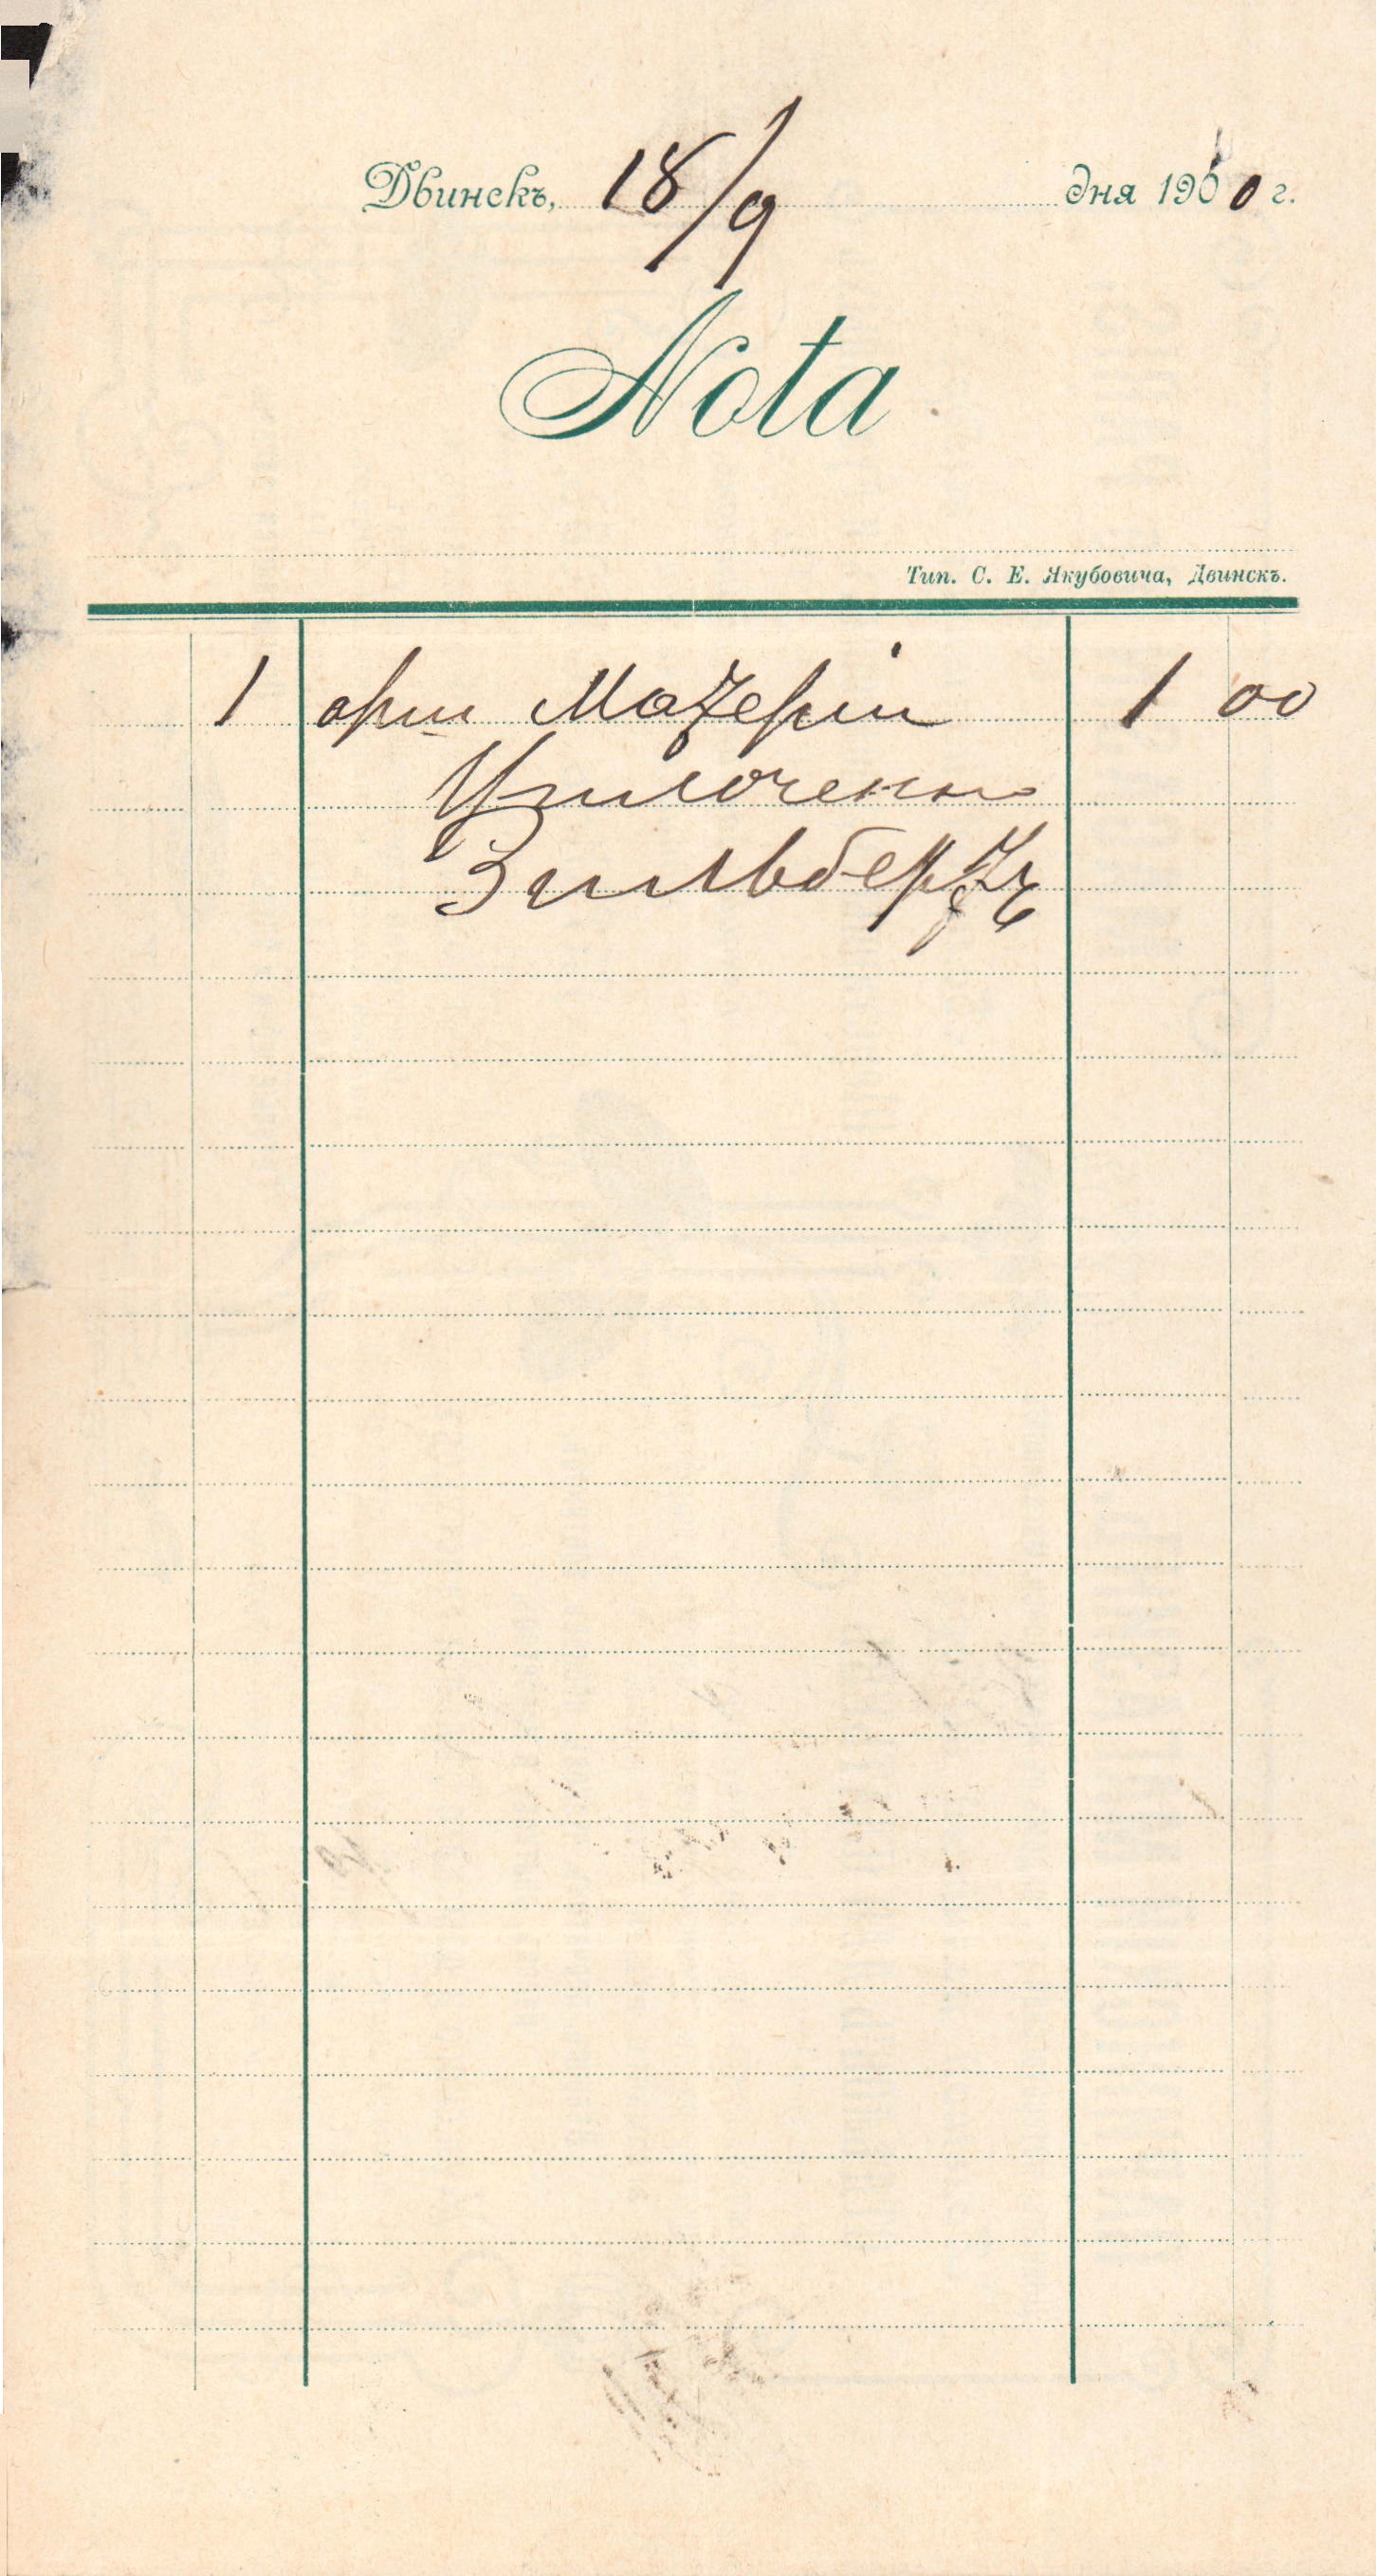 Двинскъ, 18/9 дня 1910 г.
Nota
Тип. С. Е. Якубовича, Двинскъ.
1 арш Матеріи 1 00
Уплочено
Зильбергъ